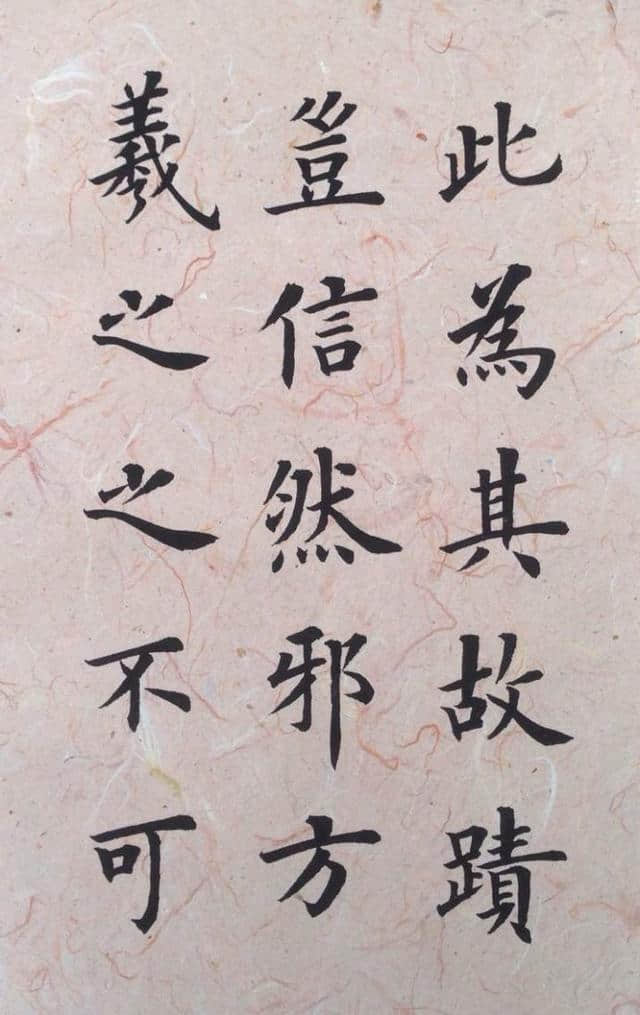 此為其故蹟
豈信然邪方
羲之之不可